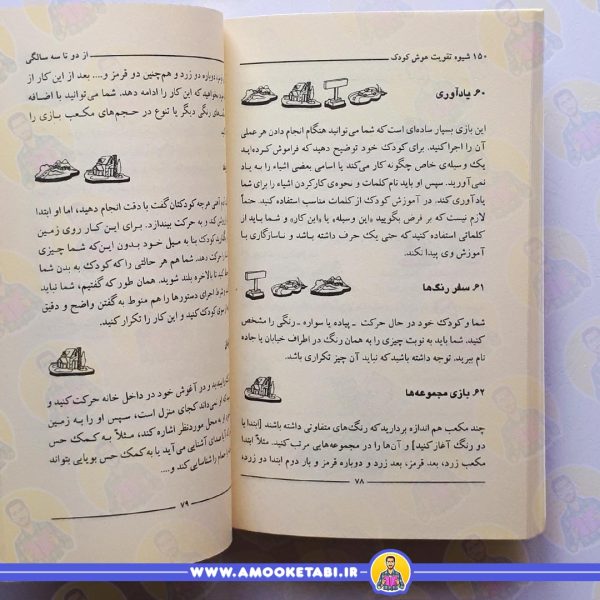 ۱۵۰ شیوه تقویت هوش کودک
۶۰. یادآوری
این بازی بسیار ساده‌ای است که شما می‌توانید هنگام انجام دادن هر عملی
آن را اجرا کنید. برای کودک خود توضیح دهید که فراموش کرده‌اید
یک وسیله‌ی خاص چگونه کار می‌کند یا اسامی بعضی اشیاء را به یاد
نمی‌آورید. سپس او باید نام کلمات و نحوه‌ی کارکردن اشیاء را برای شما
یادآوری کند. در آموزش کودک از کلمات مناسب استفاده کنید. حتماً
لازم نیست که بر فرض بگویید «این وسیله» یا «این کار» و شما باید از
کلماتی استفاده کنید که حتی یک حرف داشته باشد و ناسازگاری با
آموزش وی پیدا نکند.
۶۱. سفر رنگ‌ها
شما و کودک خود در حال حرکت ـ پیاده یا سواره ـ رنگی را مشخص
کنید. شما باید به نوبت چیزی را به همان رنگ در اطراف خیابان یا جاده
نام ببرید. توجه داشته باشید که نباید آن چیز تکراری باشد.
۶۲. بازی مجموعه‌ها
چند مکعب هم اندازه بردارید که رنگ‌های متفاوتی داشته باشند [ابتدا با
دو رنگ آغاز کنید] و آن‌ها را در مجموعه‌هایی مرتب کنید. مثلاً ابتدا
مکعب زرد، بعد قرمز، بعد زرد و دوباره قرمز و بار دوم ابتدا دو زرد،
۷۸
از دو تا سه سالگی
دوباره دو زرد و هم‌چنین دو قرمز و.... بعد از این کار از
بخواهید که این کار را ادامه دهد. شما می‌توانید با اضافه
رنگی دیگر یا تنوع در حجم‌های مکعب بازی را
هرچه کودکتان گفت با دقت انجام دهید، اما او ابتدا
کند و به حرکت بیندازد. برای این کار روی زمین
کودک بنا به میل خود بدون این‌که شما چیزی
دهد. شما هم هر حالتی را که کودک به بدن شما
تا بالاخره بلند شوید. همان طور که گفتیم، شما نباید
اجرای دستورها را هم منوط به گفتن واضح و دقیق
سوی کودک کنید و این کار را تکرار کنید.
ببندید و در آغوش خود در داخل خانه حرکت کنید و
او نمی‌داند کجای منزل است، سپس او را به زمین
به محل موردنظر اشاره کند، مثلاً به کمک حس
صدای آشنایی می‌آید یا به کمک حس بویایی بتواند
را شناسایی کند و....
۷۹
WWW.AMOOKETABI.IR